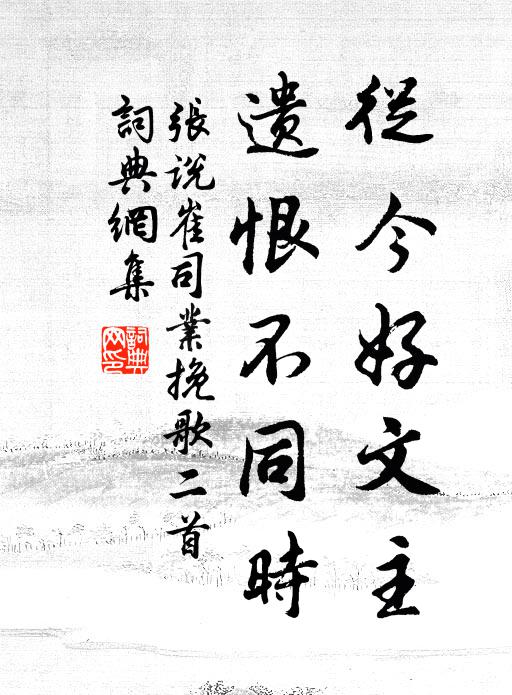 從今好文主
遺恨不同時
張說崔司業挽歌二首
詞典網集
詞典网印